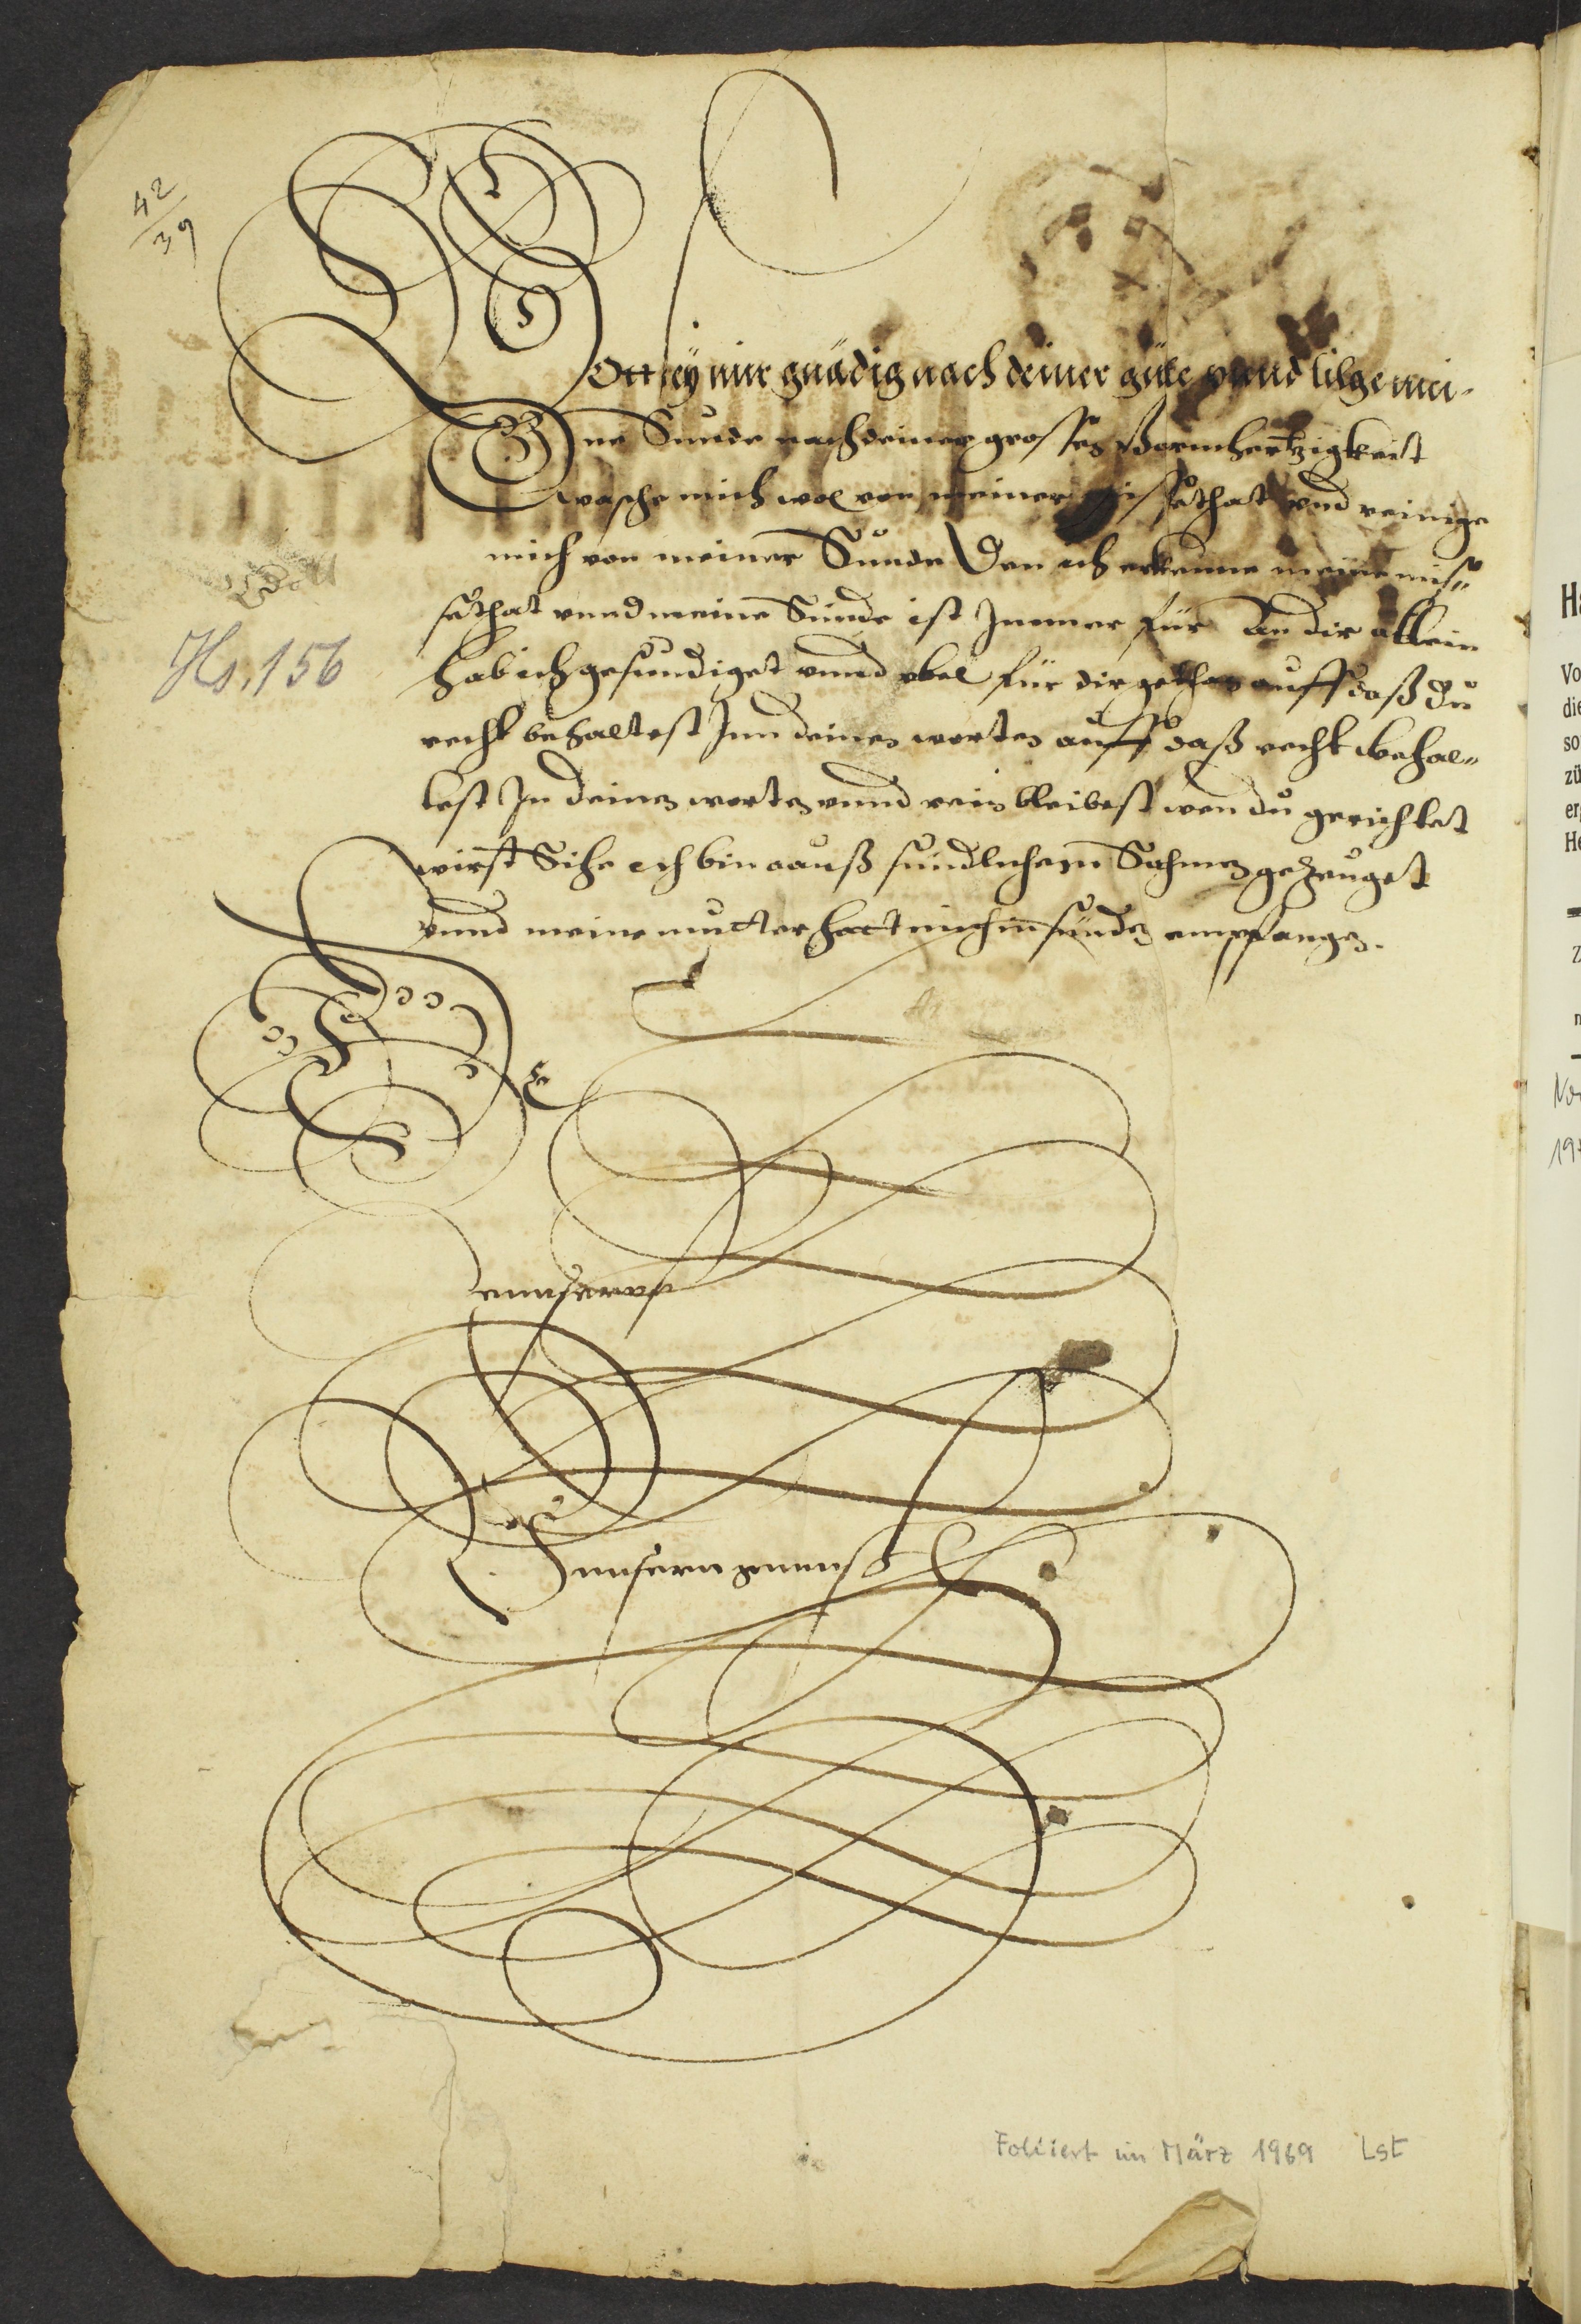 42
39
Gott seÿ mir gnädig nach deiner güte vnnd tilge mei-
ne Sünde nach deiner grossen Barmhertzigkeitt
wasche mich wol von meiner missethat vnd reinige
mich von meiner Sünde Den ich erkenne meine mis-
sethat vnnd meine Sünde ist Immer für An dir allein
hab ich gesündiget vnnd vbel für dir gethan auff daß du
recht behaltest Inn deinen worten auff daß recht behal-
test In deinen worten vnnd rein bleibest wen du gerichtet
wirst Sihe ich bin aauß sündlichem Sahmen gezeuget
vnnd meine mutter hatt mich in sünden empfangen.
Hs. 156
Foliiert im März 1969 Lst